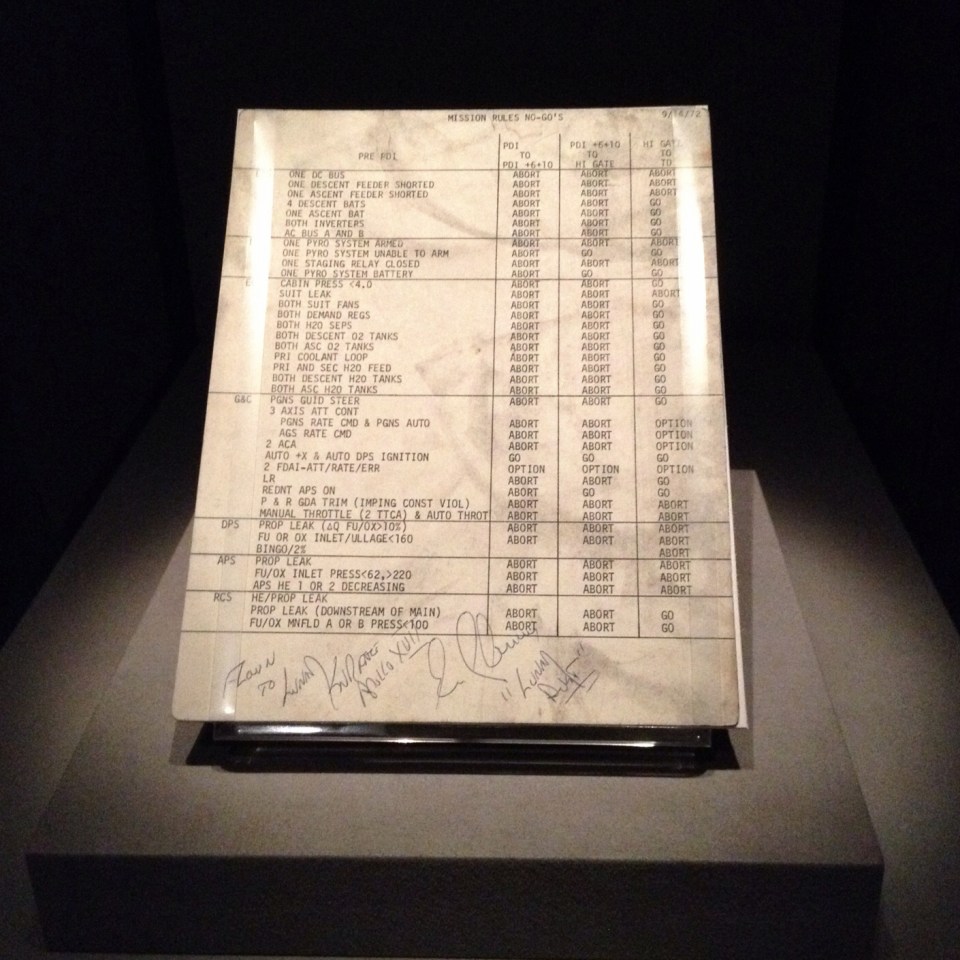 MISSION RULES NO-GO'S 9/14/72
PRE PDI PDI TO PDI +6+10 PDI +6+10 TO HI GATE HI GATE TO TD
ONE DC BUS ABORT ABORT ABORT
ONE DESCENT FEEDER SHORTED ABORT ABORT ABORT
ONE ASCENT FEEDER SHORTED ABORT ABORT ABORT
4 DESCENT BATS ABORT ABORT GO
ONE ASCENT BAT ABORT ABORT GO
BOTH INVERTERS ABORT ABORT GO
AC BUS A AND B ABORT ABORT GO
ONE PYRO SYSTEM ARMED ABORT ABORT ABORT
ONE PYRO SYSTEM UNABLE TO ARM ABORT GO GO
ONE STAGING RELAY CLOSED ABORT ABORT ABORT
ONE PYRO SYSTEM BATTERY ABORT GO GO
CABIN PRESS <4.0 ABORT ABORT GO
SUIT LEAK ABORT ABORT ABORT
BOTH SUIT FANS ABORT ABORT GO
BOTH DEMAND REGS ABORT ABORT GO
BOTH H2O SEPS ABORT ABORT GO
BOTH DESCENT O2 TANKS ABORT ABORT GO
BOTH ASC O2 TANKS ABORT ABORT GO
PRI COOLANT LOOP ABORT ABORT GO
PRI AND SEC H2O FEED ABORT ABORT GO
BOTH DESCENT H2O TANKS ABORT ABORT GO
BOTH ASC H2O TANKS ABORT ABORT GO
G&C PGNS GUID STEER ABORT ABORT GO
3 AXIS ATT CONT
PGNS RATE CMD & PGNS AUTO ABORT ABORT OPTION
AGS RATE CMD ABORT ABORT OPTION
2 ACA ABORT ABORT OPTION
AUTO +X & AUTO DPS IGNITION GO GO GO
2 FDAI-ATT/RATE/ERR OPTION OPTION OPTION
LR ABORT ABORT GO
REDNT APS ON ABORT GO GO
P & R GDA TRIM (IMPING CONST VIOL) ABORT ABORT ABORT
MANUAL THROTTLE (2 TTCA) & AUTO THROT ABORT ABORT ABORT
DPS PROP LEAK (ΔQ FU/OX>10%) ABORT ABORT ABORT
FU OR OX INLET/ULLAGE<160 ABORT ABORT ABORT
BINGO/2% ABORT
APS PROP LEAK ABORT ABORT ABORT
FU/OX INLET PRESS<62,>220 ABORT ABORT ABORT
APS HE 1 OR 2 DECREASING ABORT ABORT ABORT
RCS HE/PROP LEAK
PROP LEAK (DOWNSTREAM OF MAIN) ABORT ABORT GO
FU/OX MNFLD A OR B PRESS<100 ABORT ABORT GO
FLOWN TO LUNAR SURFACE APOLLO XVII
"LUNAR